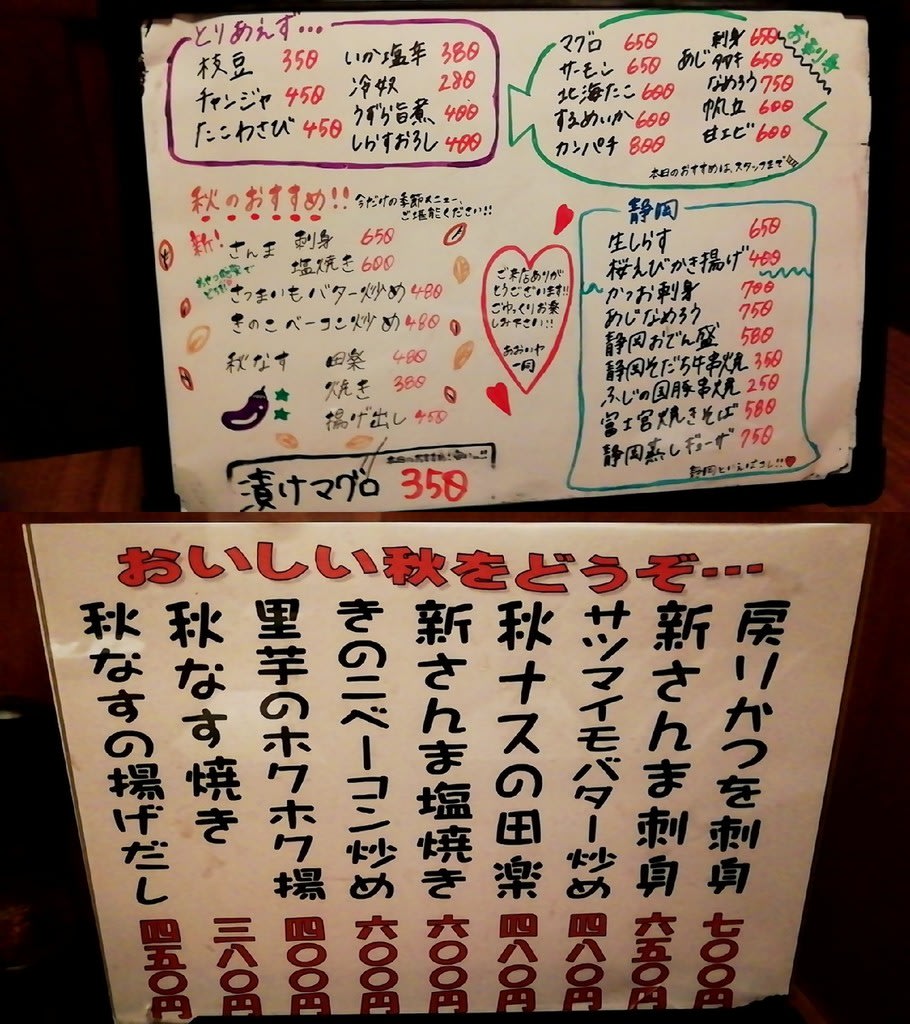 とりあえず…
枝豆 350
チャンジャ 450
たこわさび 450
いか塩辛 380
冷奴 280
うずら旨煮 400
しらすおろし 400
お刺身
マグロ 650
サーモン 650
北海たこ 600
するめいか 600
カンパチ 800
刺身 650
あじ タタキ 650
なめろう 750
帆立 600
甘エビ 600
本日のおすすめは、スタッフまで
秋のおすすめ!!
今だけの季節メニュー、
ご堪能ください!!
新!
さんま 刺身 650
塩焼き 600
さつまいもバター炒め 480
きのこベーコン炒め 480
秋なす 田楽 480
焼き 380
揚げ出し 450
漬けマグロ 350
ご来店ありが
とうございます!!
ごゆっくりお楽
しみ下さい!!
あおいや
一同
静岡
生しらす 650
桜えびかき揚げ 400
かつお刺身 700
あじなめろう 750
静岡おでん盛 580
静岡そだち牛串焼 350
ふじの国豚串焼 250
富士宮焼きそば 580
静岡蒸しギョーザ 750
静岡といえばコレ!!
おいしい秋をどうぞ…
戻りかつを刺身 七〇〇円
新さんま刺身 六五〇円
サツマイモバター炒め 四八〇円
秋ナスの田楽 四八〇円
新さんま塩焼き 六〇〇円
きのこベーコン炒め 六〇〇円
里芋のホクホク揚 四〇〇円
秋なす焼き 三八〇円
秋なすの揚げだし 四五〇円